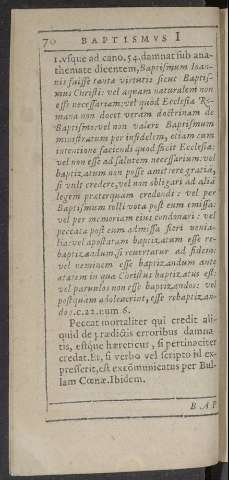 70 BAPTISMVS I
1. vsque ad cano. 54. damnat sub ana-
themate dicentem, Baptismum Ioan-
nis fuisse tanta virtutis sicut Baptis-
mus Christi: vel aquam naturalem non
esse necessariam: vel quod Ecclesia Ro-
mana non docet veram doctrinam de
Baptismo: vel non valere Baptismum
ministratum per infidelem, etiam cum
intentione faciendi quod facit Ecclesia:
vel non esse ad salutem necessarium: vel
baptizatum non posse amittere gratia,
si vult credere, vel non obligari ad aliã
legem praterquam credendi: vel per
Baptismum tolli vota post eum emissa:
vel per memoriam eius condonari: vel
peccata post eum admissa fieri venia-
lia: vel apostatam baptizatum esse re-
baptizandum, si reuertatur ad fidem:
vel neminem esse baptizandum ante
atatem in qua Christus baptizatus est:
vel paruulos non esse baptizandos: vel
postquam adoleuerint, esse rebaptizan-
dos: c. 22. num 6.
Peccat mortaliter qui credit ali-
quid de prædictis erroribus damna-
tis, estque hæreticus, si pertinaciter
credat. Et, si verbo vel scripto id ex-
presserit, est excõmunicatus per Bul-
lam Cœnæ. Ibidem.
BAP